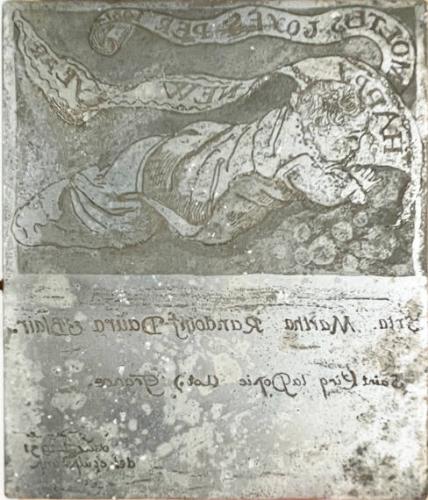 MOLTES PER
HAPPY NEW YEAR
Srta. Martha Randolf Daura & Blair.
Saint Cirq la Popie (Lot) France